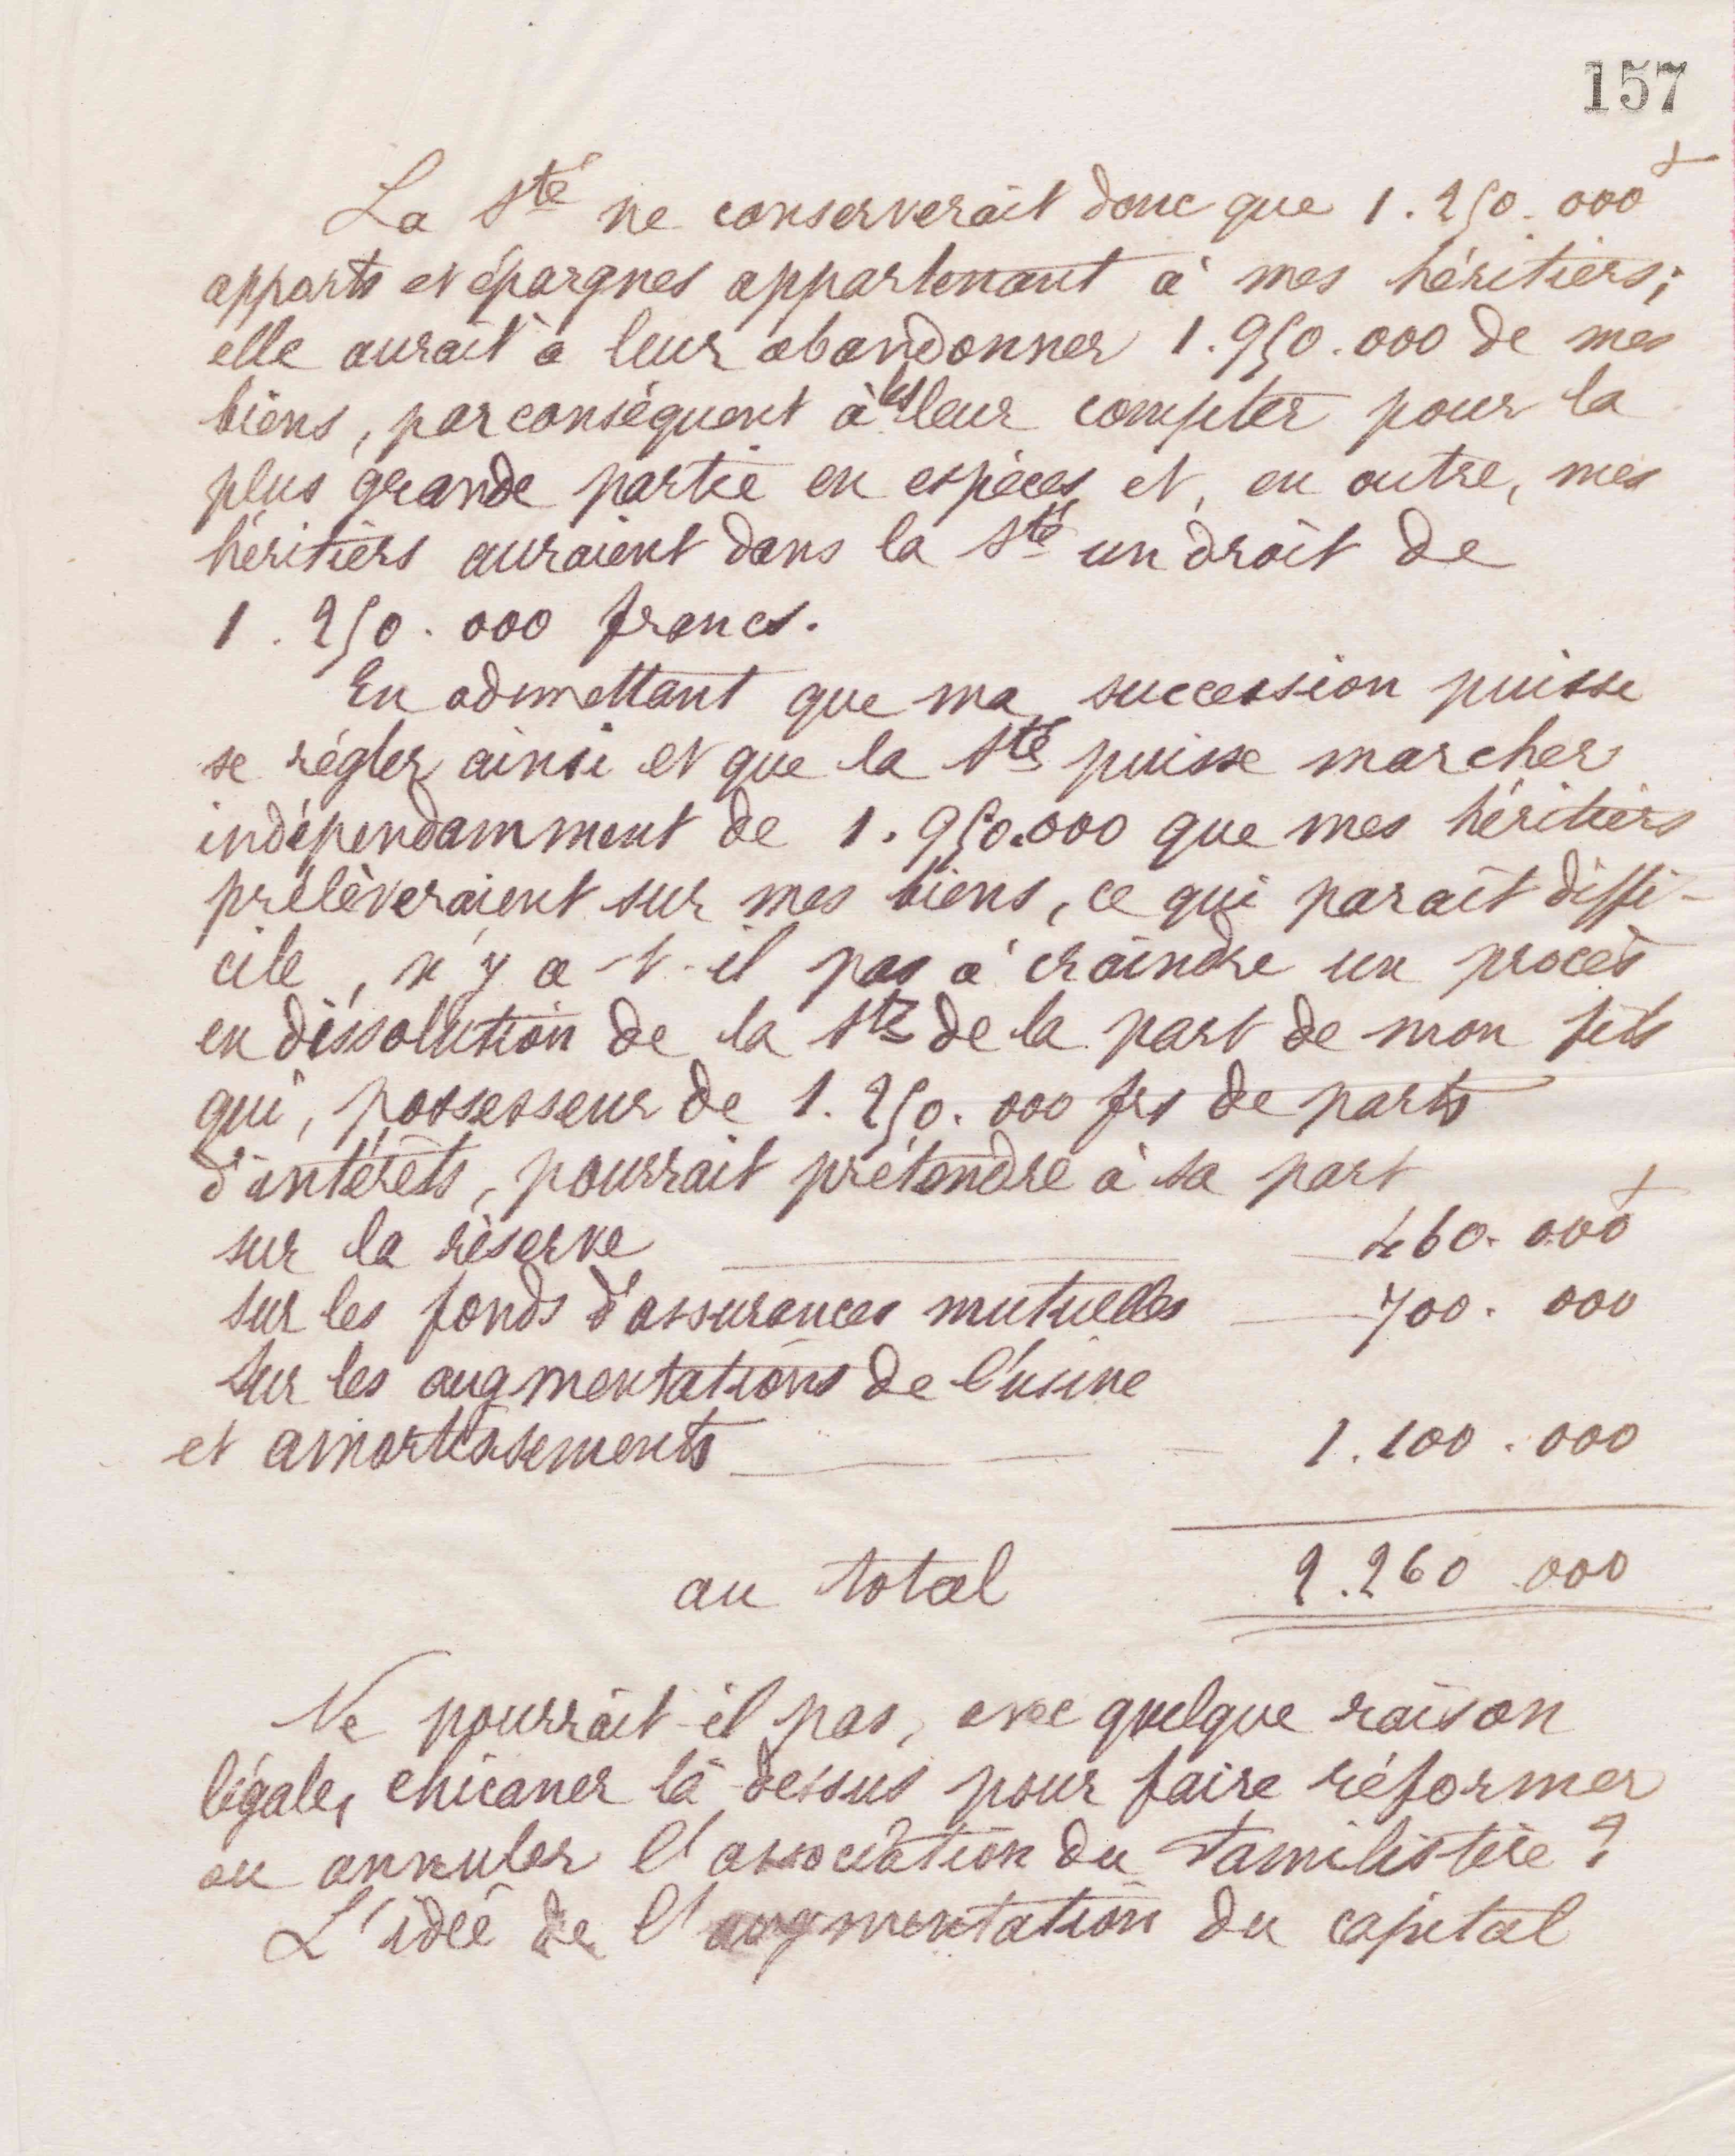 157
La Sté ne conserverait donc que 1.250.000f
apports et épargnes appartenant à mes héritiers;
elle aurait à leur abandonner 1.950.000 de mes
biens, par conséquent à les leur compter pour la
plus grande partie en espèces et, en outre, mes
héritiers auraient dans la Sté un droit de
1.250.000 francs.
En admettant que ma succession puisse
se régler ainsi et que la Sté puisse marcher
indépendamment de 1.950.000 que mes héritiers
prélèveraient sur mes biens, ce qui paraît diffi-
cile, n'y a-t-il pas à craindre un procès
en dissolution de la Sté de la part de mon fils
qui, possesseur de 1.250.000 frs de parts
d'intérêts, pourrait prétendre à sa part
sur la réserve 460.000f
sur les fonds d'assurances mutuelles 700.000
Sur les augmentations de l'usine
et amortissements 1.100.000
au total 2.260.000
Ne pourrait-il pas, avec quelque raison
légale, chicaner là-dessus pour faire réformer
ou annuler l'association du Familistère?
L'idée de l'augmentation du capital